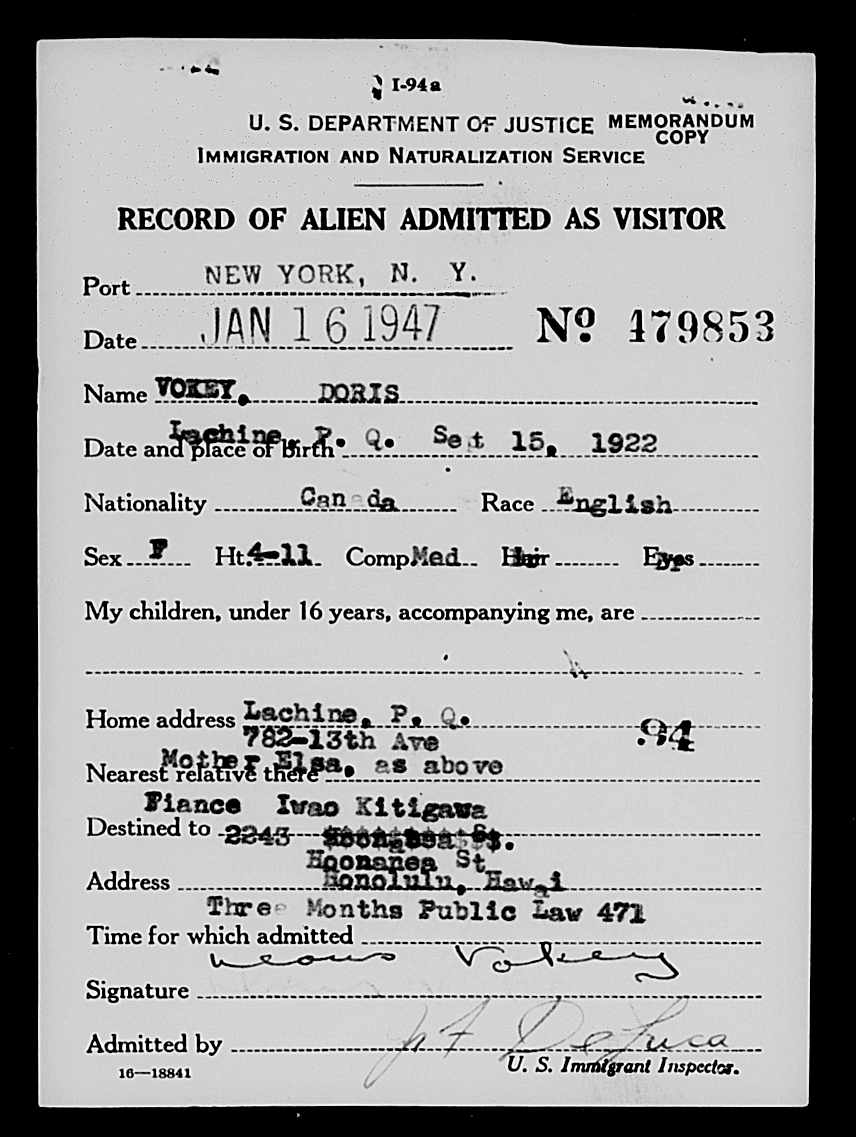 I-94a
U. S. DEPARTMENT OF JUSTICE MEMORANDUM COPY
IMMIGRATION AND NATURALIZATION SERVICE
RECORD OF ALIEN ADMITTED AS VISITOR
Port NEW YORK, N. Y.
Date JAN 16 1947 No 479853
Name VOKEY, DORIS
Date and place of birth Lachine, P. Q. Set 15, 1922
Nationality Canada Race English
Sex F Ht. 4-11 Comp. Med Hair Eyes
My children, under 16 years, accompanying me, are
Home address Lachine, P. Q.
782-13th Ave
94
Nearest relative there Mother Elsa, as above
Fiance Iwao Kitigawa
Destined to 2243 St.
Hoonanea St
Address Honolulu, Hawai
Three Months Public Law 471
Time for which admitted
Signature Vokey
Admitted by De Luca
16—18841 U. S. Immigrant Inspector.